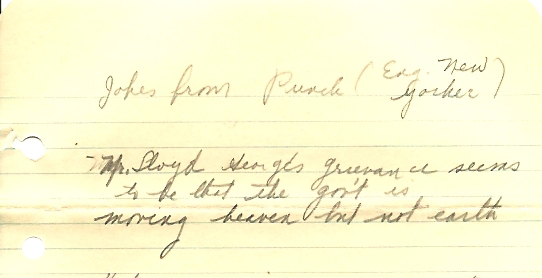 Jokes from Punch (Eng. New Yorker)
Mr. Lloyd George's grievance seems
to be that the gov't is
moving heaven but not earth